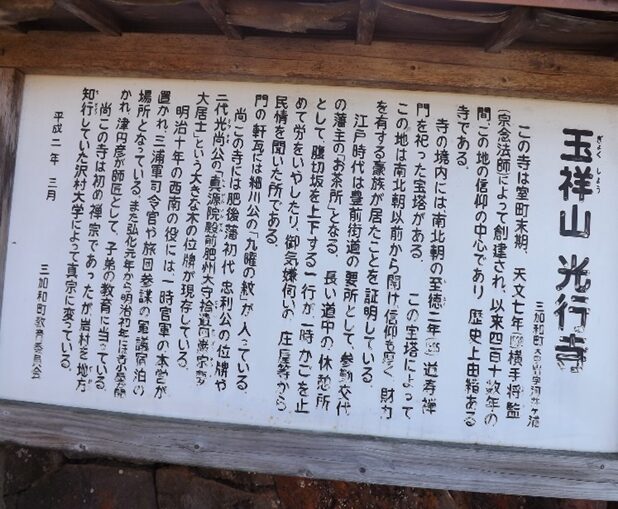 玉祥山 光行寺
ぎょくしょう
三加和町大字
この寺は室町末期、天文七年 横手将監
(宗念法師)によって創建され、以来四百十数年の
間、この地の信仰の中心であり 歴史上由緒ある
寺である。
寺の境内には南北朝の至徳二年 道寿禅
門を祀った宝塔がある。 この宝塔によって
この地は南北朝以前から開け信仰も厚く 財力
を有する豪族が居たことを証明している。
江戸時代は豊前街道の要所として、参勤交代
の藩主の「お茶所」となる。長い道中の休憩所
として、腹切坂を上下する一行が一時かごを止
めて労をいやしたり、御気嫌伺いの 庄屋等から
民情を聞いた所である。
門の軒瓦には細川公の「九曜の紋」が 入っている。
尚この寺には肥後藩初代 忠利公の位牌や
二代光尚公の「真源院殿前肥州大守拾遺
大居士」という大きな木の位牌が現存している。
明治十年の西南の役には、一時官軍の本営が
置かれ、三浦軍司令官や旅団参謀の軍議宿泊の
場所となっている。また弘化元年から明治初年には
かれ、津田彦が師匠として、子弟の教育に当っている。
尚この寺は初め禅宗であったが岩村を地方
知行していた沢村大学によって真宗に変っている。
平成二年 三月
三加和町教育委員会